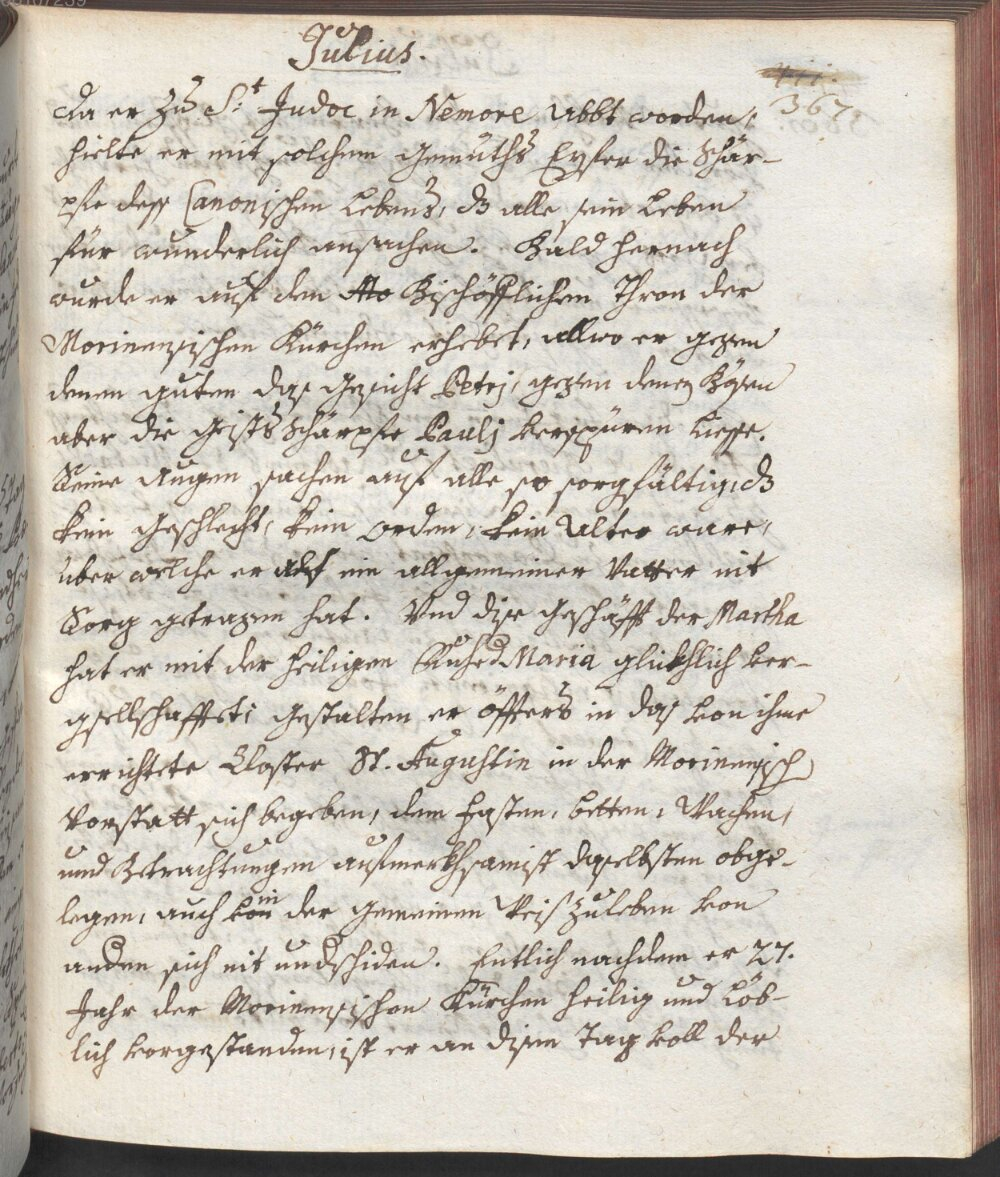 Julius.
367.
da er zu S:t Judoc in Nemore Abbt worden,
hielte er mit solchem gemüths Eyfer die Schär-
pfe dess Canonischen Lebens, dz alle sein Leben
für wunderlich ansachen. Bald hernach
wurde er auf den Bischöfflichen Thron der
Morinensischen Kürchen erhebet, allwo er gegen
denen guten das gesicht Petrj, gegen denen Bösen
aber die geists Schärpfe Paulj verspüren liesse.
Seine Augen sachen auf alle so sorgfältig, dz
kein geschlecht, kein orden, kein Alter ware,
über welche er als ein allgemeiner Vatter nit
Sorg getragen hat. Und dise geschäfft der Martha
hat er mit der heiligen Ruhe Maria glükhlich ver-
gsellschafftet, gestalten er öffters in das von ihme
errichtete Closter St. Augustin in der Morinensisch
Vorstatt sich begeben, dem fasten, betten, Wachen,
und Betrachtungen aufmerkhsamist daselbsten obge-
legen, auch in der gemeinen Weis zuleben von
andern sich nit undschiden. Entlich nachdem er 27.
Jahr der Morinensischen Kürchen heilig und Löb-
lich vorgestanden, ist er an disem Tag voll der